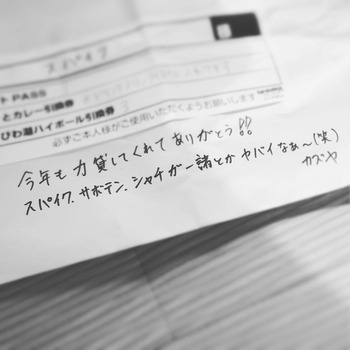 スパイク
PASS
とカレー引換券
びわ湖ハイボール引換券 3
必ずご本人様がご使用いただくようお願いします
今年も力貸してくれてありがとう!!
スパイク.サボテン.シャチが一諸とかヤバイなぁ〜(笑)
カズヤ